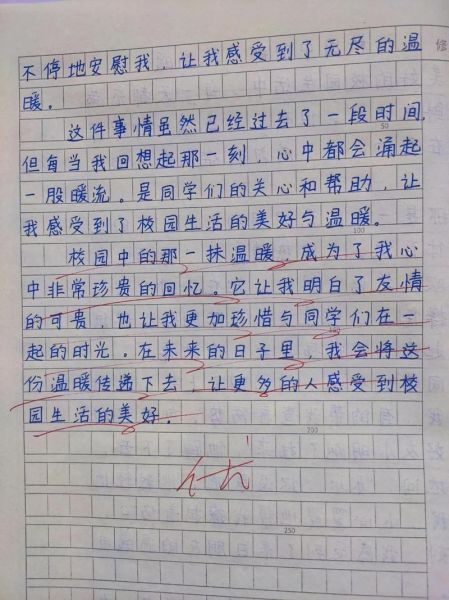 不停地安慰我，让我感受到了无尽的温
暖。
这件事情虽然已经过去了一段时间，
50
但每当我回想起那一刻，心中都会涌起
一股暖流。是同学们的关心和帮助，让
我感受到了校园生活的美好与温暖。
100
校园中的那一抹温暖，成为了我心
中非常珍贵的回忆。它让我明白了友情
的可贵，也让我更加珍惜与同学们在一
起的时光。在未来的日子里，我会将这
份温暖传递下去，让更多的人感受到校
园生活的美好。
200
优
250